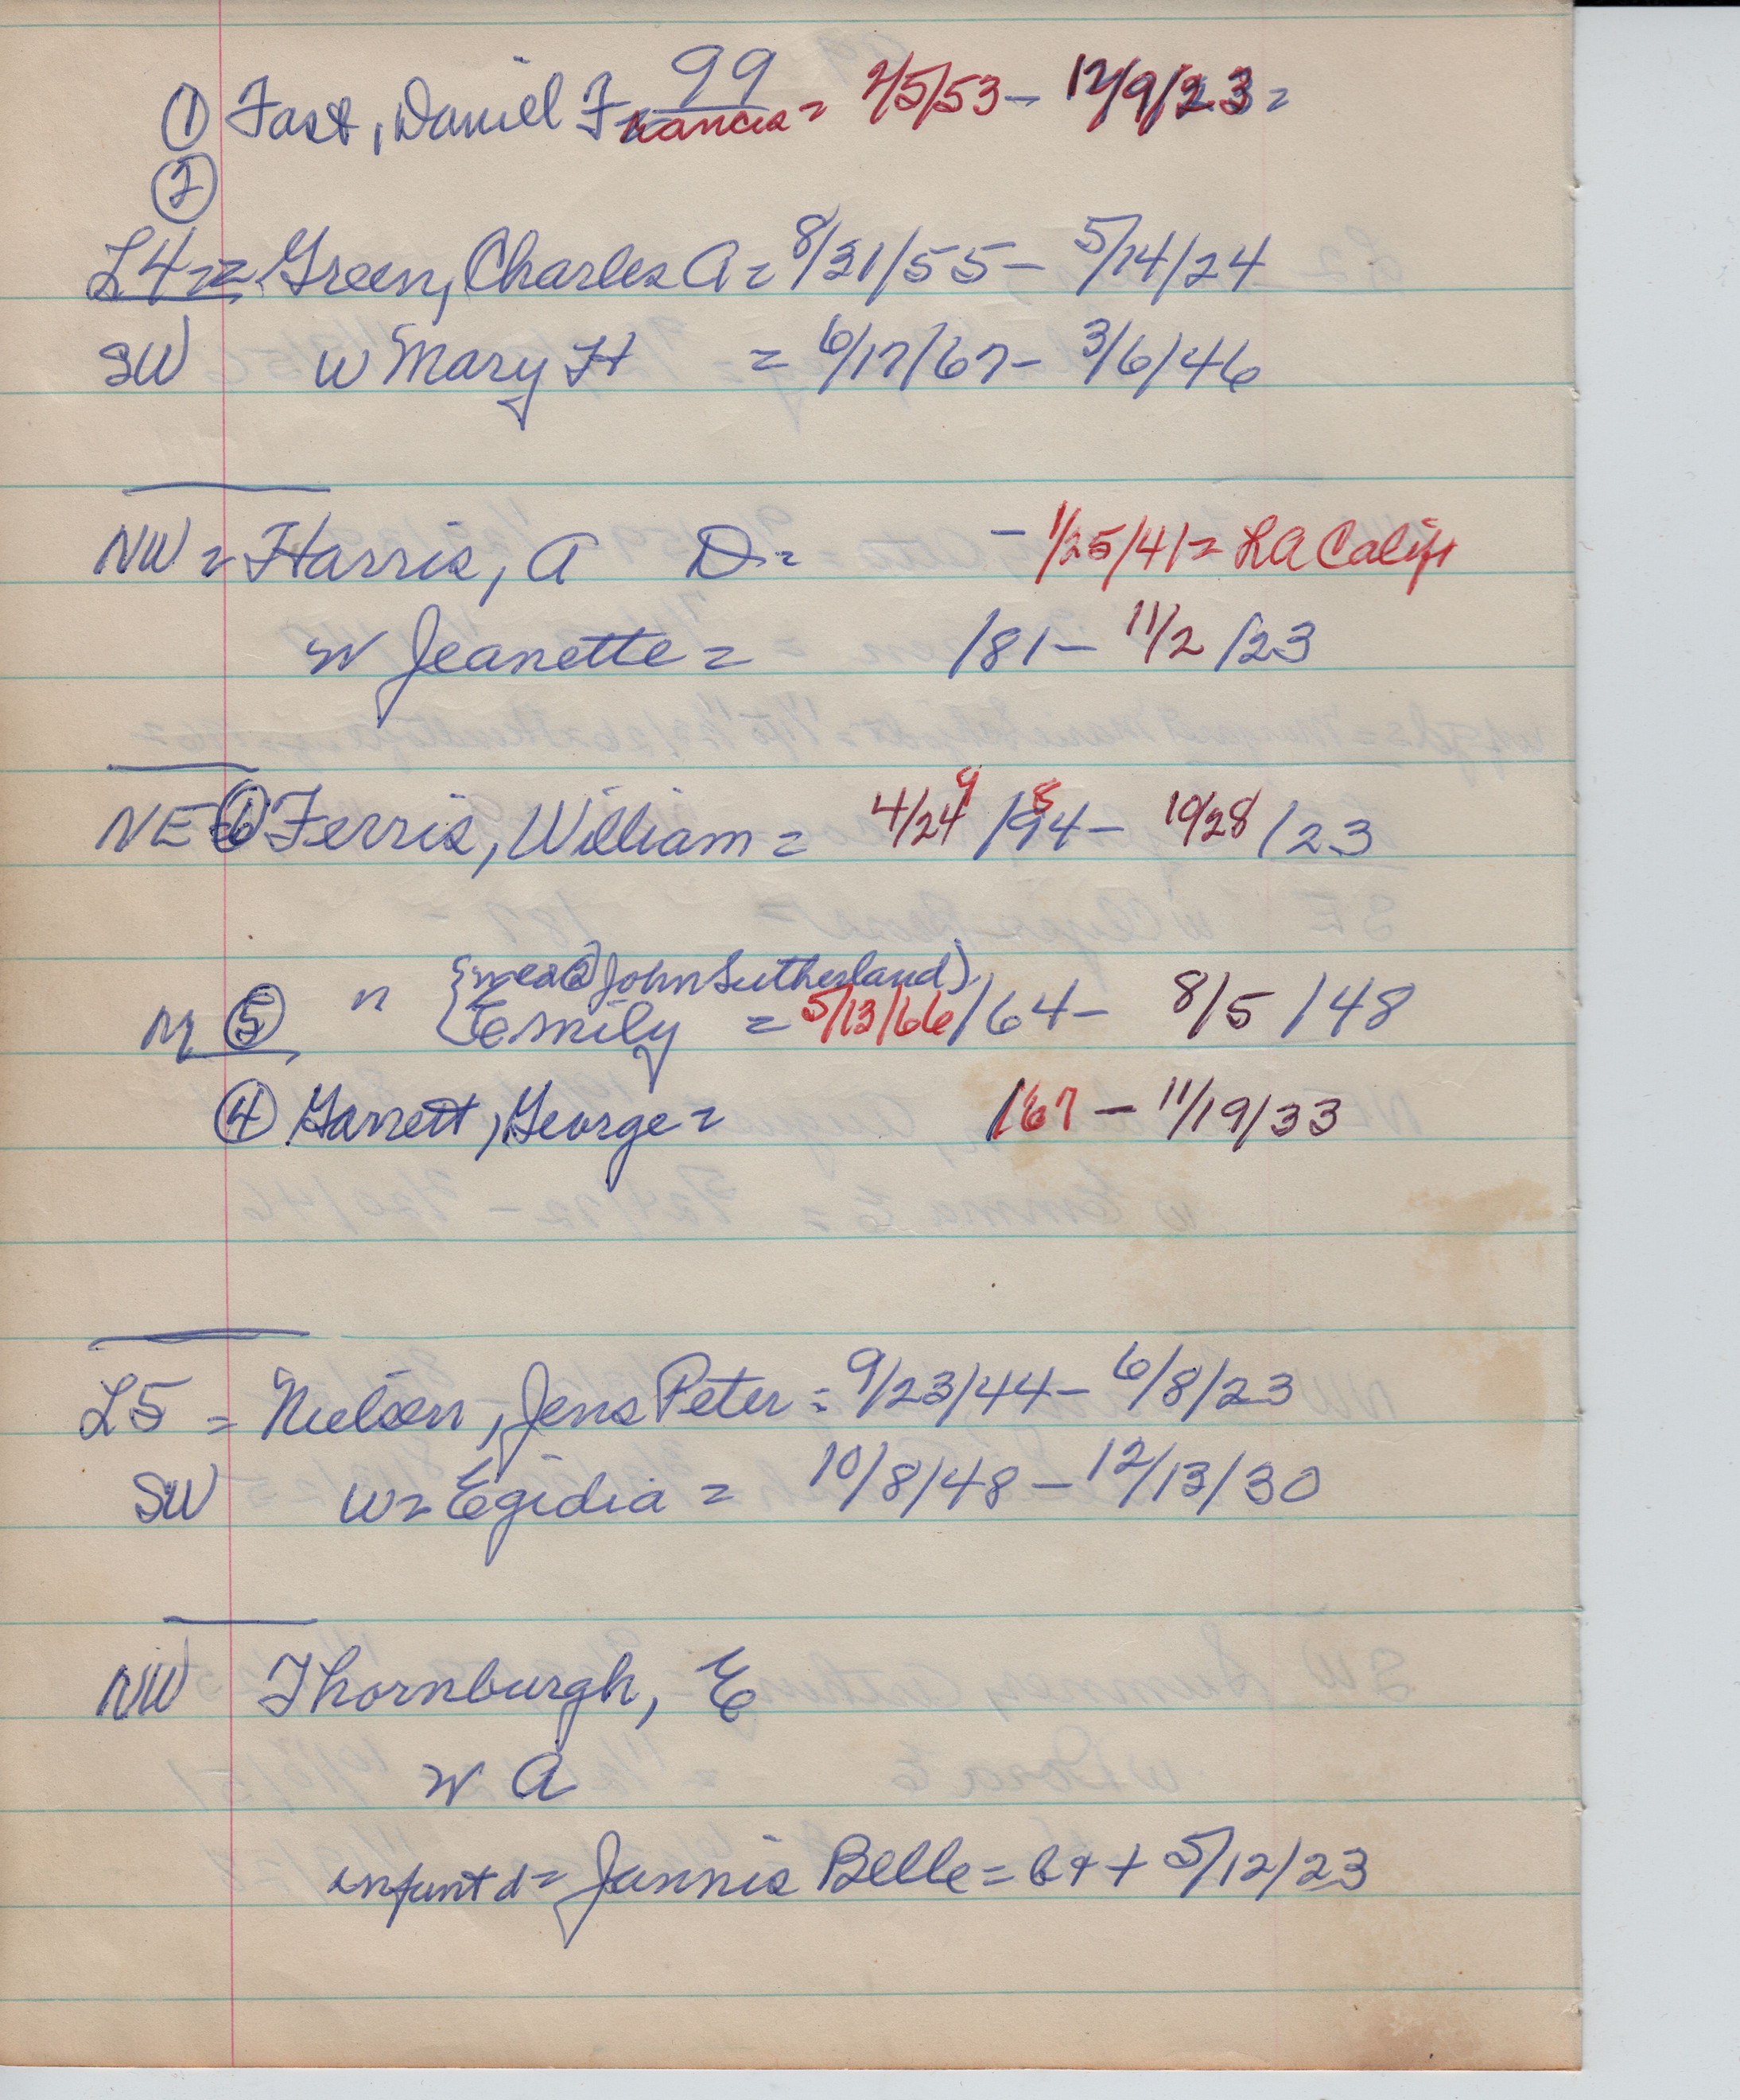 99
① Fast, Daniel Francis = 2/5/53 - 12/9/23 =
②
L4 = Green, Charles A = 8/31/55 - 5/14/24
SW w Mary H = 6/17/67 - 3/6/46
NW = Harris, A D = - 1/25/41 = LA Calif
w Jeanette = /81 - 11/2/23
NE ⑥ Ferris, William = 4/24 9 /94 8 - 10/28/23
{wed ② John Sutherland)
M ⑤ " {Emily = 5/13/66 /64 - 8/5/48
④ Garrett, George = /67 - 11/19/33
L5 = Nielsen, Jens Peter = 9/23/44 - 6/8/23
SW w = Egidia = 10/8/48 - 12/13/30
NW Thornburgh, E
w A
infant d = Jannis Belle = b + + 5/12/23